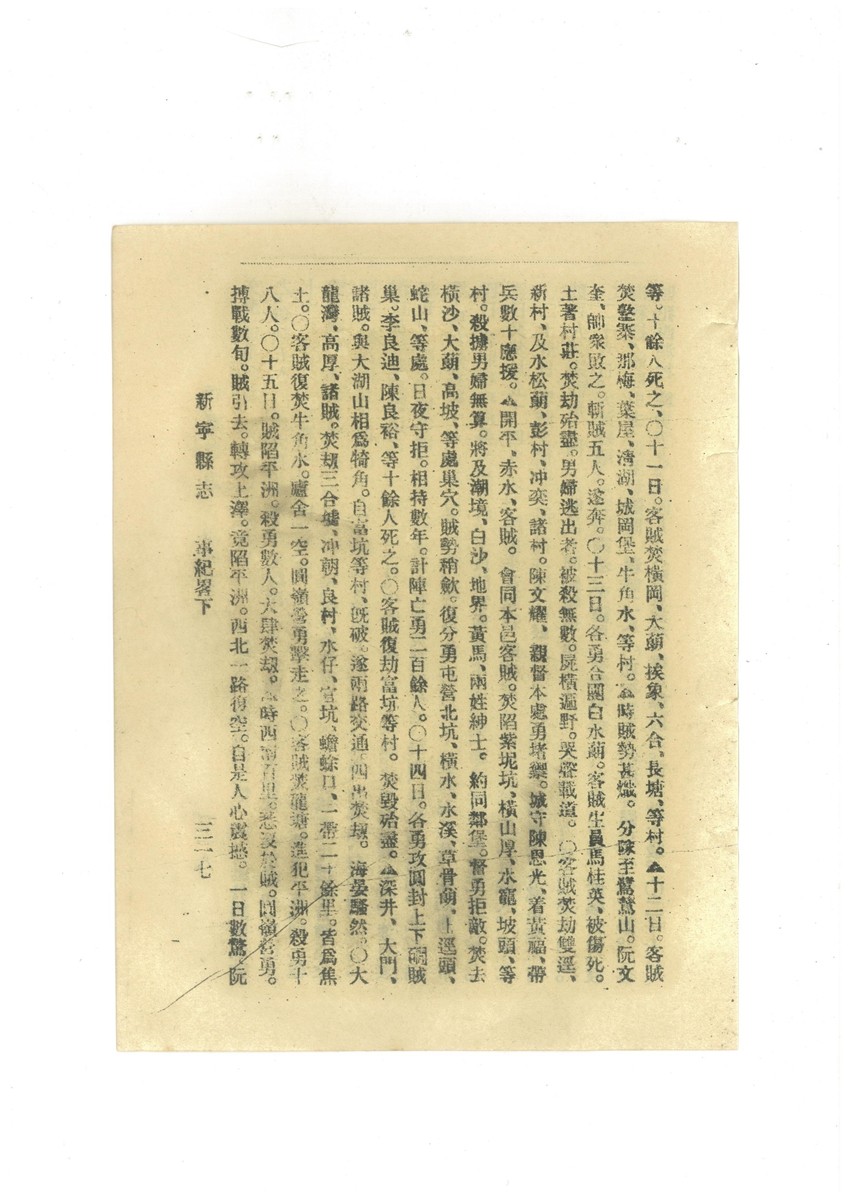 等、十餘人死之、〇十一日。客賊焚橫岡、大蓢、挨象、六合、長塘、等村。▲十二日。客賊
焚鰲寨、那梅、葉屋、清湖、城岡堡、牛角水、等村。▲時賊勢甚熾。分隊至鴛鴦山。阮文
奎、帥眾敗之。斬賊五人。遂奔。〇十三日。各勇合圍白水蓢。客賊生員馬桂英、被傷死。
土著村莊。焚劫殆盡。男婦逃出者。被殺無數。屍橫遍野。哭聲載道。〇客賊焚劫雙逕、
新村、及水松蓢、彭村、冲奕、諸村。陳文耀、親督本處勇堵禦。城守陳恩光、着黃福、帶
兵數十應援。▲開平、赤水、客賊。會同本邑客賊。焚陷紫坭坑、橫山厚、水寵、坡頭、等
村。殺擄男婦無算。將及潮境、白沙、地界。黃馬、兩姓紳士。約同鄰堡。督勇拒敵。焚去
橫沙、大蓢、高坡、等處巢穴。賊勢稍歛。復分勇屯營北坑、橫水、水溪、草骨蓢、上逕頭、
蛇山、等處。日夜守拒。相持數年。計陣亡勇二百餘人。〇十四日。各勇攻圓封上下賊
巢。李良迪、陳良裕、等十餘人死之。〇客賊復劫富坑等村。焚毀殆盡。▲深井、大門、
諸賊。與大湖山相為犄角。自富坑等村、既破。遂兩路交通。四出焚劫。海晏騷然。〇大
龍灣、高厚、諸賊。焚劫三合墟、冲朝、良村、水仔、官坑、蟾蜍口、一帶二十餘里。皆為焦
土。〇客賊復焚牛角水。廬舍一空。圓嶺營勇擊走之。〇客賊焚龍塘。進犯平洲。殺勇十
八人。〇十五日。賊陷平洲。殺勇數人。大肆焚劫。▲時西南百里。悉沒於賊。圓嶺營勇。
搏戰數旬。賊引去。轉攻上澤。竟陷平洲。西北一路復空。自是人心震撼。一日數驚、阮
新寧縣志 事紀畧下 三一七